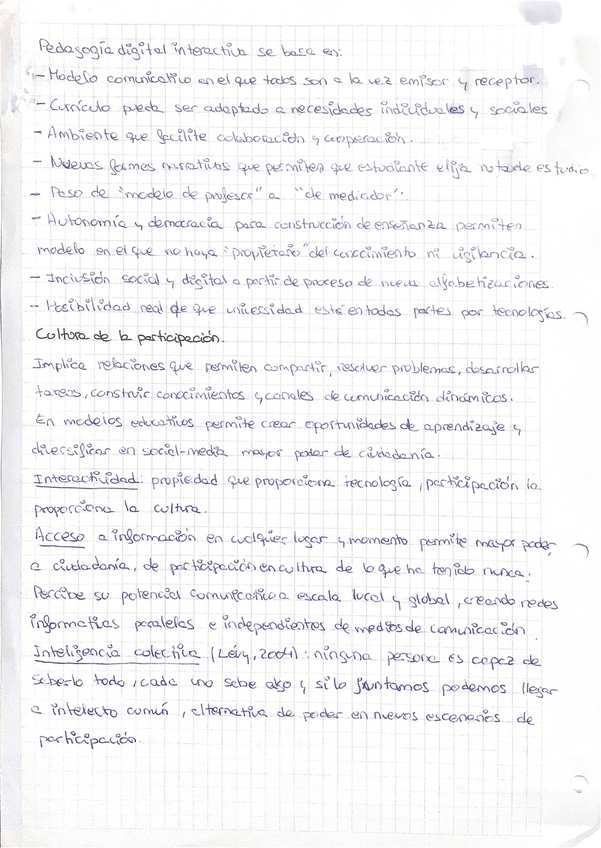 Pedagogía digital interactiva se basa en:
- Modelo comunicativo en el que todos son a la vez emisor y receptor.
- Currículo pueda ser adaptado a necesidades individuales y sociales
- Ambiente que facilite colaboración y cooperación.
- Nuevas formas narrativas que permiten que estudiante elija ruta de estudio.
- Paso de "modelo de profesor" a "de mediador".
- Autonomía y democracia para construcción de enseñanza permiten
modelo en el que no haya "propietario" del conocimiento ni vigilancia.
- Inclusión social y digital a partir de proceso de nueva alfabetizaciones.
- Posibilidad real de que universidad esté en todas partes por tecnologías.
Cultura de la participación.
Implica relaciones que permiten compartir, resolver problemas, desarrollar
tareas, construir conocimientos y canales de comunicación dinámicos.
En modelos educativos permite crear oportunidades de aprendizaje y
diversificar en social-media mayor poder de ciudadanía.
Interactividad: propiedad que proporciona tecnología, participación la
proporciona la cultura.
Acceso a información en cualquier lugar y momento permite mayor poder
a ciudadanía, de participación en cultura de lo que ha tenido nunca.
Percibe su potencial comunicativo a escala local y global, creando redes
informativas paralelas e independientes de medios de comunicación.
Inteligencia colectiva (Lévy, 2004): ninguna persona es capaz de
saberlo todo, cada uno sabe algo y si lo juntamos podemos llegar
a intelecto común, alternativa de poder en nuevos escenarios de
participación.